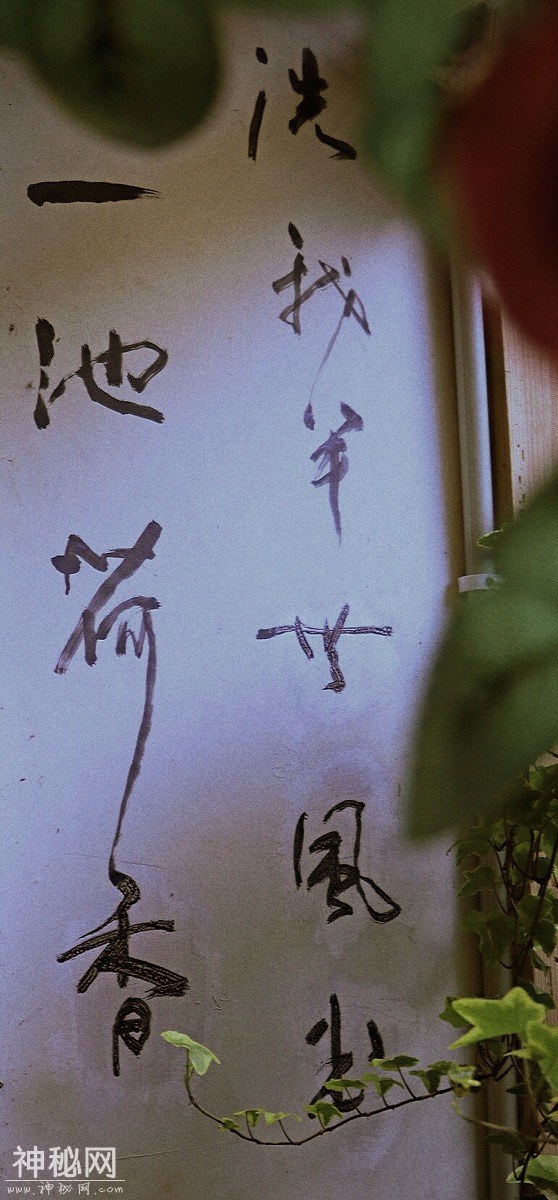 洗我半世風尘
一池荷香
神秘网
www.神秘网.com